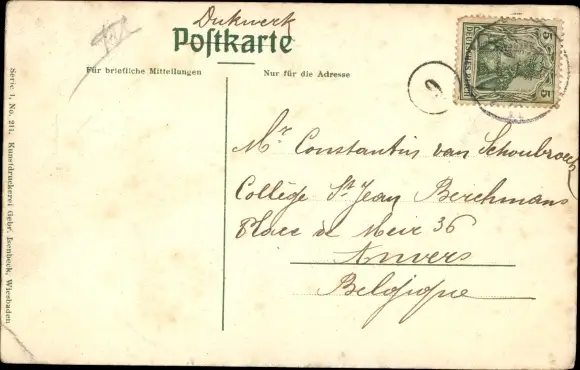 Drukwerk
Postkarte
Für briefliche Mitteilungen
Nur für die Adresse
DEUTSCHES REICH
5
5
2
Mr Constantin van Schoubroeck
Collège St Jean Berchmans
Place de Meir 36
Anvers
Belgique
Serie 1, No. 211. Kunstdruckerei Gebr. Isenbeck, Wiesbaden